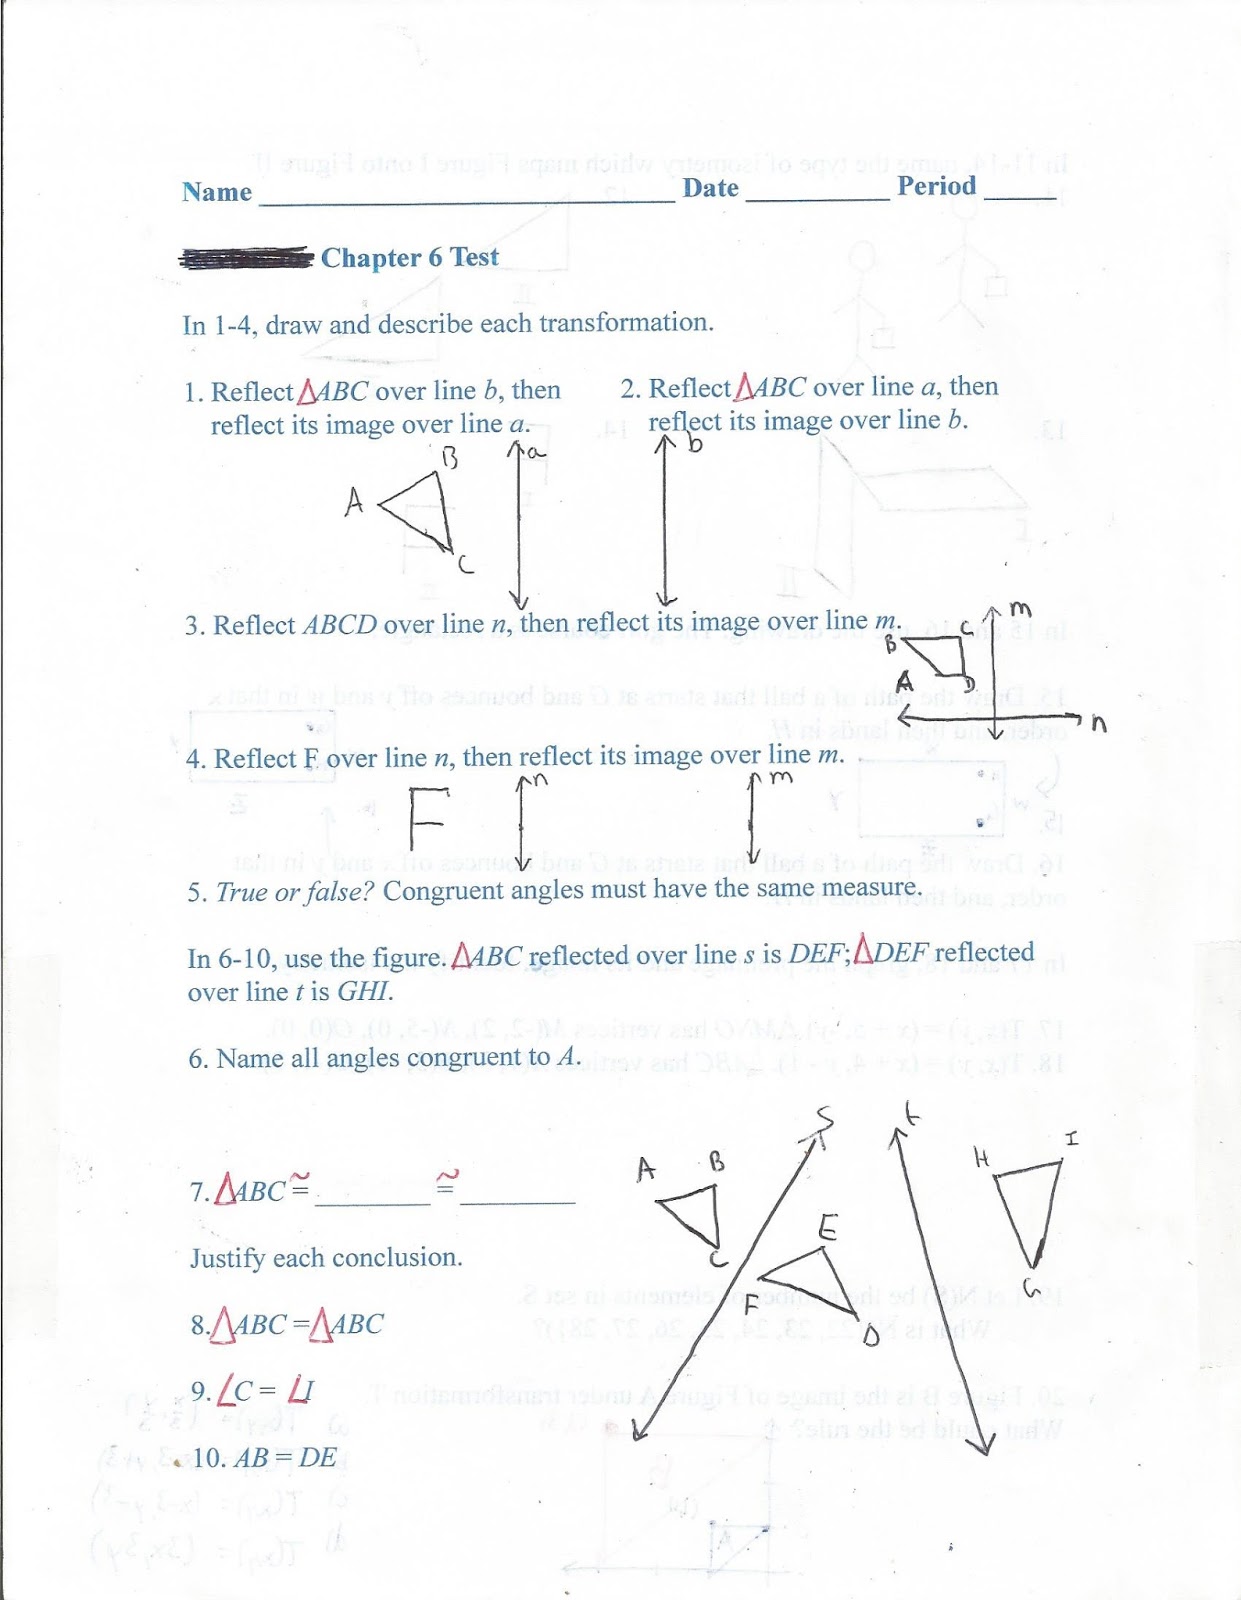 Name ______ Date ______ Period ______
Chapter 6 Test
In 1-4, draw and describe each transformation.
1. Reflect △ABC over line b, then
reflect its image over line a.
2. Reflect △ABC over line a, then
reflect its image over line b.
A B C a b
3. Reflect ABCD over line n, then reflect its image over line m.
B C A D m n
4. Reflect F over line n, then reflect its image over line m.
F n m
5. True or false? Congruent angles must have the same measure.
In 6-10, use the figure. △ABC reflected over line s is DEF; △DEF reflected
over line t is GHI.
6. Name all angles congruent to A.
S t
A B C
H I G
E F D
7. △ABC ≅ ______ ≅ ______
Justify each conclusion.
8. △ABC = △ABC
9. ∠C = ∠I
10. AB = DE